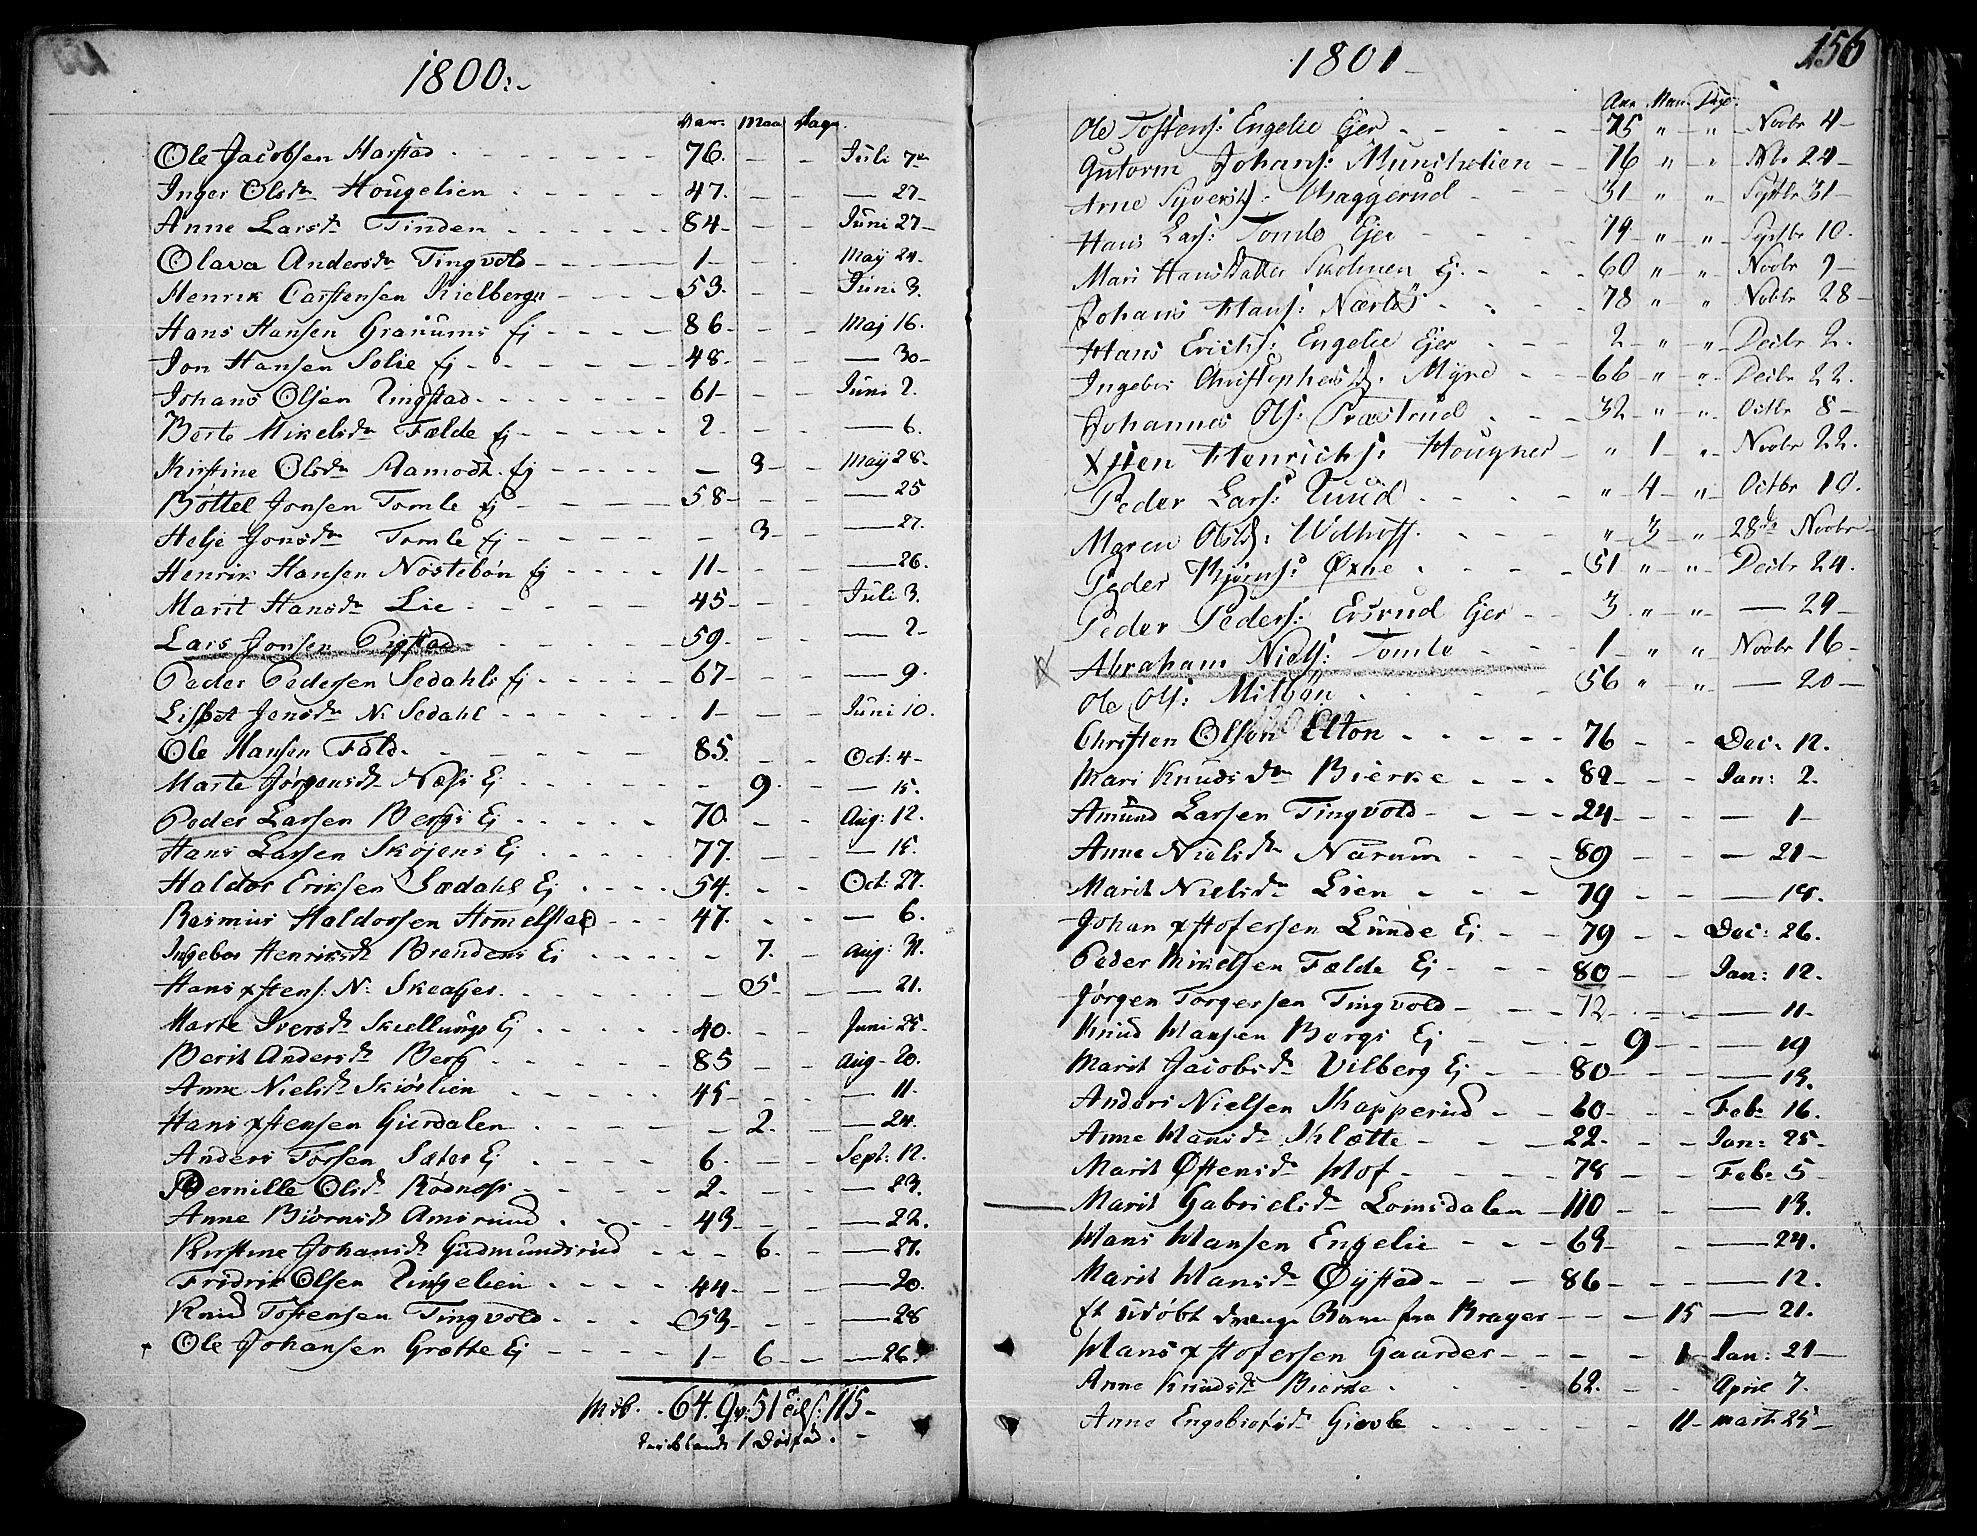 1800.
Aar. Maa. Dage.
Ole Jacobsen Harstad 76. Juli 7de
Inger Olsdr Hougelien 47. — 27
Anne Larsdr Tinden 84 Juni 27
Olava Andersdr Tingvold 1 May 24
Henrik Carstensen Kielbergs 53. Juni 3.
Hans Hansen Granums Ej 86 Maj 16.
Jon Hansen Solie Ej 48. — 30
Johans Olsen Ringstad 61 Juni 2.
Berte Mikelsdr Fælde Ej 2 — 6.
Kirstine Olsdr Aamodt. Ej 3 May 28
Bottel Jonsen Tomle Ej 58 — 25
Helje Jonsdr Tomle Ej 3 — 27.
Henrik Hansen Nøstebøn Ej 11 — 26.
Marit Hansdr Lie 45 Juli 3.
Lars Jonsen 59. — 2
Peder Pedersen Sedahls Ej 67 — 9.
Lisbet Jensdr N. Sedahl 1 Juni 10.
Ole Hansen Fald 85. Oct: 4
Marte Jørgensdr Næss Ej 9. — 15.
Peder Larsen Bergs Ej 70. Aug: 12.
Hans Larsen Skojens Ej 77. — 15.
Haldor Eriksen Sædahl Ej 54. Oct: 27.
Rasmus Haldorsen Hommelstad 47. — 6.
Ingebor Henriksdr Brendens Ej 7. Aug: 31.
Hans xstens: N: 5 — 21.
Marte Iversdr Skiellungs Ej 40. Juni 25
Berit Andersdr Berg 85 Aug 20.
Anne Nielsdr Skiøslien 45 — 11.
Hans xstensen Gierdalen 2. — 24.
Anders Torsen Sæter Ej 6. Sept: 12.
Pernille Olsdr Rødnæss 2. — 23.
Anne Biørnsdr Amsrud 43 — 22.
Kirstine Johansdr Gudmundsrud 6. — 27.
Fridrik Olsen Ringelien 44 — 20.
Knud Tostensen Tingvold 53 — 28
Ole Johansen Grøtte Ej 1 6 — 26
Mdk. 64. Qv: 51 tils: 115
1 Døefød.
156
1801
Aar Maa: Dage.
Ole Tostens: Engelie Ejer 75 " " Novbr 4
Gutorm Johans: Munthelien 76 " " No. 24
Arne Syversd: Haggerud 31 " " 31
Hans Lars: Tomle Ejer 74 " " 10.
Mari Hansdatter Skolmen Ej. 60 " " Novbr 9
Johans Hans: Nærlø 78 " " Novbr 28
Hans Erichs: Engelie Ejer 2 " " Decbr 2.
Ingebor Christophersd: Myre 66 " " Decbr 22.
Johannes Ols: Præstrud 32 " " Octbr 8
Xsten Henrichs: Hougner " 1 " Novbr 22.
Peder Lars: Ruud " 4 " Octbr 10.
Maren Olsd: Wolhoff. " 3 " 28de Novbr
Peder Bjørns: Øxne 51 " " Decbr 24.
Peder Peders: Eusrud Ejer 3 " " — 29
Abraham Niels: Tomle 1 " " Novbr 16
Ole Ols: Mitbøn 56 " " — 20
Christen Olsen Elton 76 Dec: 12.
Mari Knudsdr Bierke 82 Jan: 2.
Amund Larsen Tingvold 24 — 1
Anne Nielsdr Narum 89 — 21
Marit Nielsdr Lien 79 — 15.
Johan xstofersen Lunde Ej 79 Dec: 26.
Peder Mikelsen Fælde Ej 80 Jan: 12.
Jørgen Torgersen Tingvold 72 — 11.
Knud Hansen Bergs Ej 9 — 19
Marit Jacobsdr Vilberg Ej 80 — 13.
Anders Nielsen Skapperud 60 Feb: 16.
Anne Hansdr Klætte 22. Jan: 25
Marit Østensdr Hof 78 Feb: 5
Marit Gabrielsdr Lomsdalen 110 — 13.
Hans Hansen Engelie 63 — 24.
Marit Hansdr Øystad 86 — 12.
Et udøbt Drenge Barn fra Brager 15 — 21.
Hans xstofersen Gaarder 1 Jan: 21
Anne Knudsdr Bierke 62. April 7.
Anne Engebrets dr Giøvle 11 Mart: 25